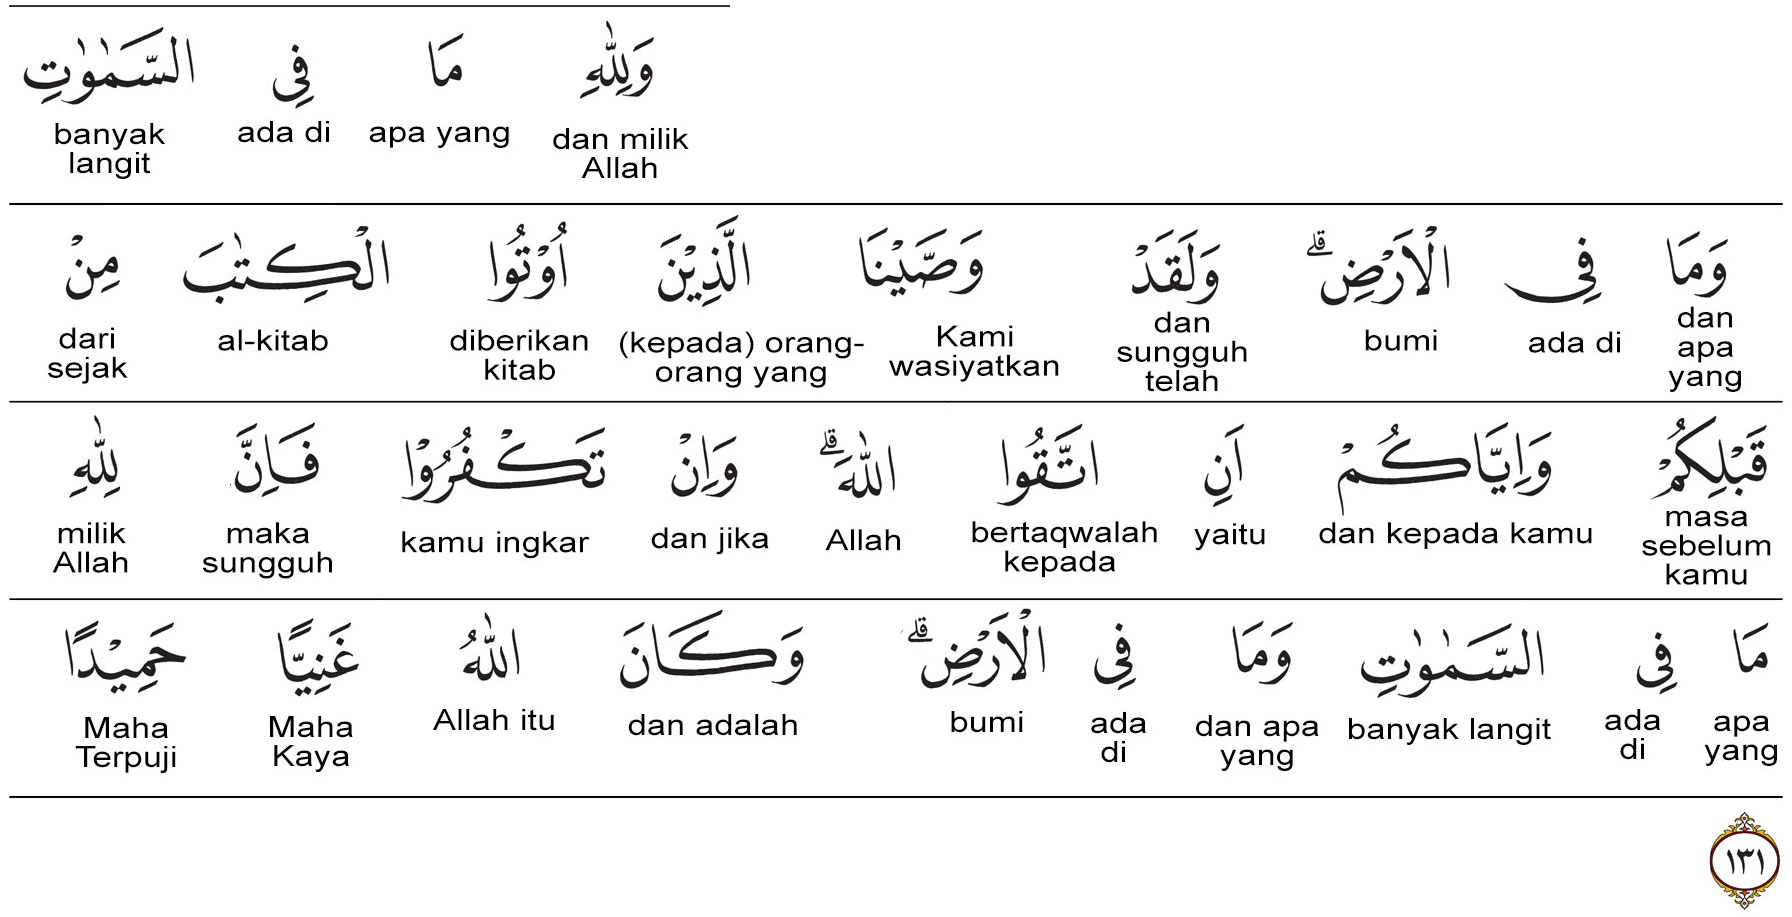 وَلِلّٰهِ مَا فِى السَّمٰوٰتِ
dan milik Allah apa yang ada di banyak langit
وَمَا فِى الْاَرْضِۗ وَلَقَدْ وَصَّيْنَا الَّذِيْنَ اُوْتُوا الْكِتٰبَ مِنْ
dan apa yang ada di bumi dan sungguh telah Kami wasiyatkan (kepada) orang-orang yang diberikan kitab al-kitab dari sejak
قَبْلِكُمْ وَاِيَّاكُمْ اَنِ اتَّقُوا اللّٰهَۗ وَاِنْ تَكْفُرُوْا فَاِنَّ لِلّٰهِ
masa sebelum kamu dan kepada kamu yaitu bertaqwalah kepada Allah dan jika kamu ingkar maka sungguh milik Allah
مَا فِى السَّمٰوٰتِ وَمَا فِى الْاَرْضِۗ وَكَانَ اللّٰهُ غَنِيًّا حَمِيْدًا
apa yang ada di banyak langit dan apa yang ada di bumi dan adalah Allah itu Maha Kaya Maha Terpuji
١٣١